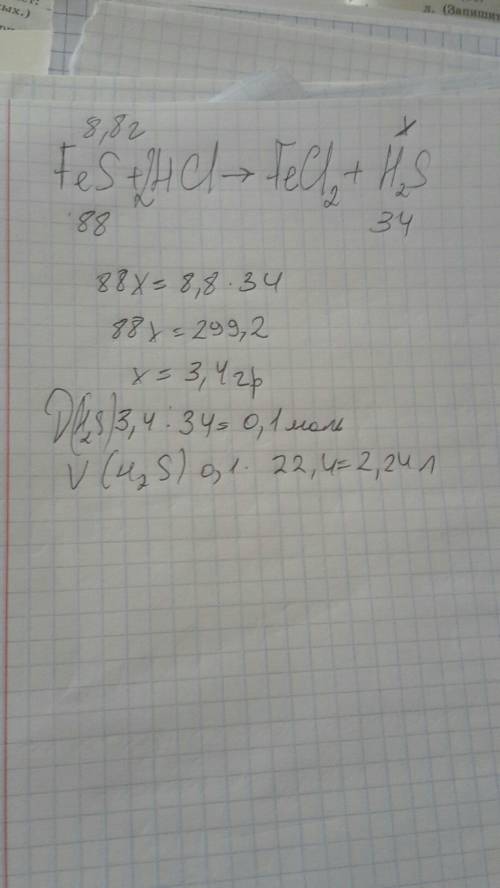 ых.)
л. (Запиши
8,8г x
FeS + 2HCl → FeCl₂ + H₂S
88 34
88x = 8,8 · 34
88x = 299,2
x = 3,4 гр
ν(H₂S) 3,4 : 34 = 0,1 моль
V (H₂S) 0,1 · 22,4 = 2,24 л